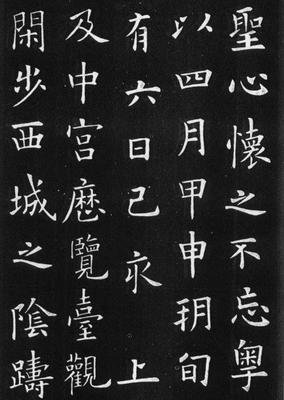 聖心懷之不忘粤
以四月甲申玥旬
有六日己亥上
及中宮歷覽臺觀
閑步西城之陰躊